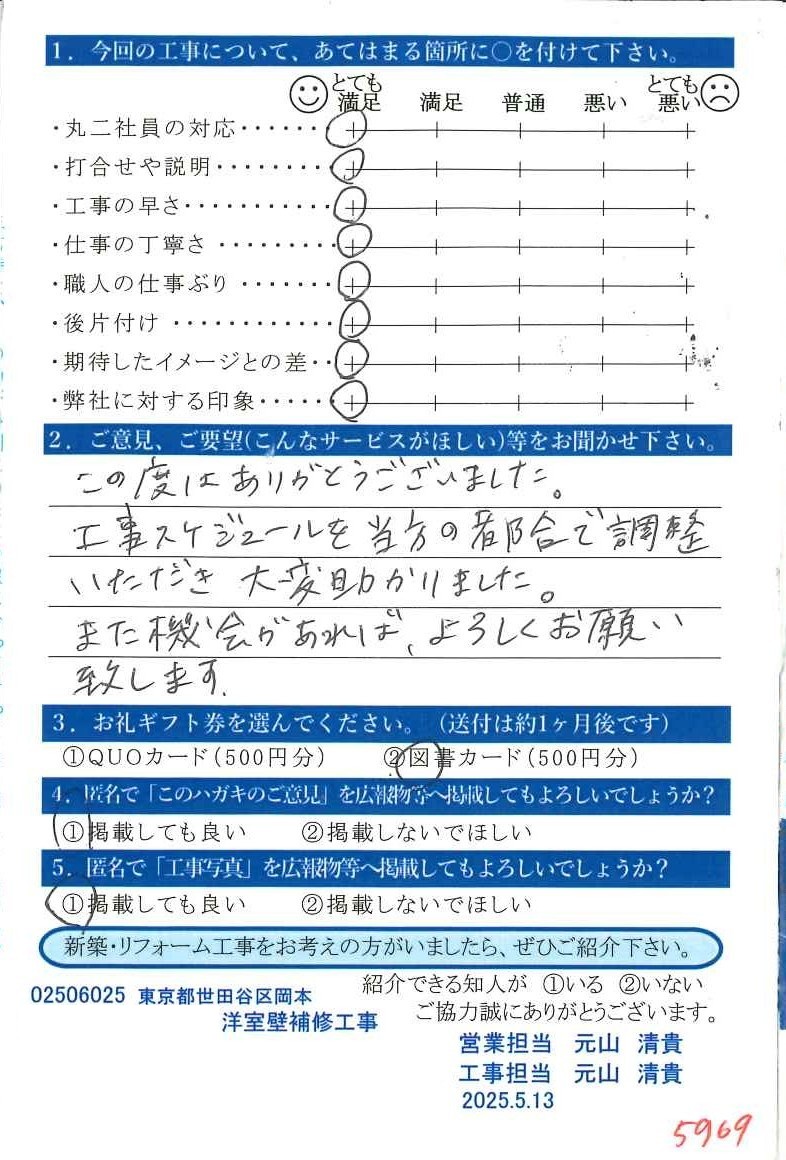 1．今回の工事について、あてはまる箇所に○を付けて下さい。
とても満足 満足 普通 悪い とても悪い
・丸二社員の対応・・・・・・
・打合せや説明・・・・・・・・
・工事の早さ・・・・・・・・・・
・仕事の丁寧さ ・・・・・・・・
・職人の仕事ぶり ・・・・・・
・後片付け ・・・・・・・・・・・
・期待したイメージとの差・・
・弊社に対する印象・・・・・
2．ご意見、ご要望(こんなサービスがほしい)等をお聞かせ下さい。
この度はありがとうございました。
工事スケジュールを当方の都合で調整
いただき 大変助かりました。
また機会があれば、よろしくお願い
致します.
3．お礼ギフト券を選んでください。（送付は約1ヶ月後です）
①QUOカード(500円分) ②図書カード(500円分)
4．匿名で「このハガキのご意見」を広報物等へ掲載してもよろしいでしょうか？
①掲載しても良い ②掲載しないでほしい
5．匿名で「工事写真」を広報物等へ掲載してもよろしいでしょうか？
①掲載しても良い ②掲載しないでほしい
新築・リフォーム工事をお考えの方がいましたら、ぜひご紹介下さい。
紹介できる知人が ①いる ②いない
02506025 東京都世田谷区岡本
ご協力誠にありがとうございます。
洋室壁補修工事
営業担当 元山 清貴
工事担当 元山 清貴
2025.5.13
5969